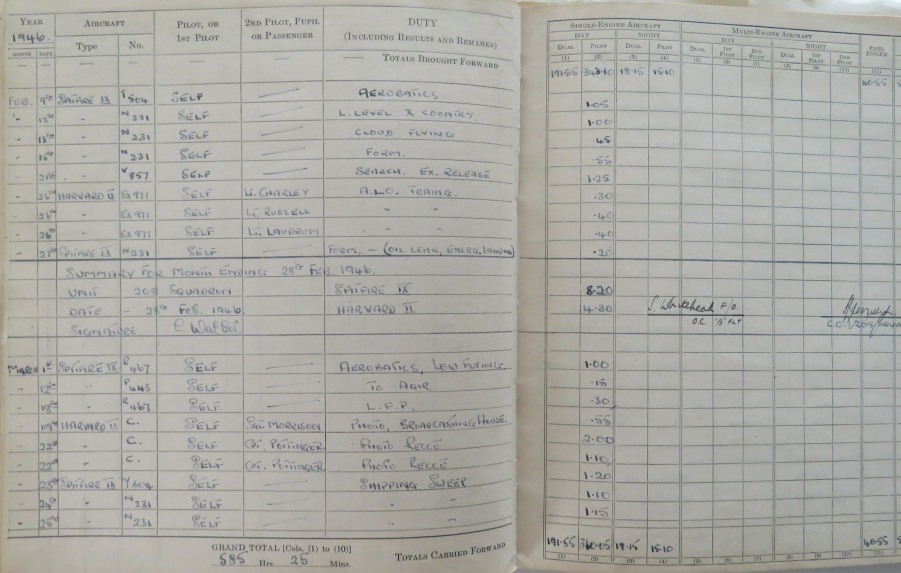 YEAR AIRCRAFT PILOT, OR 2ND PILOT, PUPIL DUTY
1946. Type No. 1ST PILOT OR PASSENGER (INCLUDING RESULTS AND REMARKS)
MONTH DATE
TOTALS BROUGHT FORWARD
SINGLE-ENGINE AIRCRAFT MULTI-ENGINE AIRCRAFT PASSENGER
DAY NIGHT DAY NIGHT
DUAL PILOT DUAL PILOT DUAL 1ST PILOT 2ND PILOT DUAL 1ST PILOT 2ND PILOT
(1) (2) (3) (4) (5) (6) (7) (8) (9) (10) (11)
191.55 343.10 18.15 15.10 40.55
FEB. 9th SPITFIRE IX 504 SELF — AEROBATICS 1.05
" 13th " N 231 SELF — L. LEVEL X COUNTRY. 1.00
" 13th " N 231 SELF — CLOUD FLYING .45
" 15th " N 231 SELF — FORM. .55
" " V 857 SELF — SEARCH. EX. RELEASE 1.25
" 26th HARVARD II EX 971 SELF Lt. CHARLEY A.L.O. TRAING. .30
" 26th " EX 971 SELF Lt. RUSSELL " " .40
" 26th " EX 971 SELF Lt. LAUDRUM " " .40
" 27th SPITFIRE IX N 231 SELF — FORM. – (OIL LEAK, EMERG, LANDING) .20
SUMMARY FOR MONTH ENDING 28th FEB. 1946.
UNIT 208 SQUADRON SPITFIRE IX 8.20
DATE – 28th FEB. 1946 HARVARD II. 4.30 S. Whitehead F/O
SIGNATURE O.C. 'A' FLT
MARCH 1st SPITFIRE IX R 467 SELF — AEROBATICS, LOW FLYING. 1.00
" 12th " 443 SELF — TO AQIR .15
" 18th " R 467 SELF — L.F.P. .30
" 19th HARVARD II C. SELF MORRISON PHOTO, BROADCASTING HOUSE. .55
" 22nd " C. SELF POTTINGER PHOTO RECCE 2.00
" 22nd " C. SELF POTTINGER PHOTO RECCE 1.10
" 23rd SPITFIRE IX 504 SELF — SHIPPING SWEEP 1.20
" 24th " N 231 SELF — " " 1.10
" 25th " N 231 SELF — " " 1.15
GRAND TOTAL [Cols. (1) to (10)]
585 Hrs. 25 Mins.
TOTALS CARRIED FORWARD
191.55 360.05 18.15 15.10 40.55
(1) (2) (3) (4) (5) (6) (7) (8) (9) (10) (11)